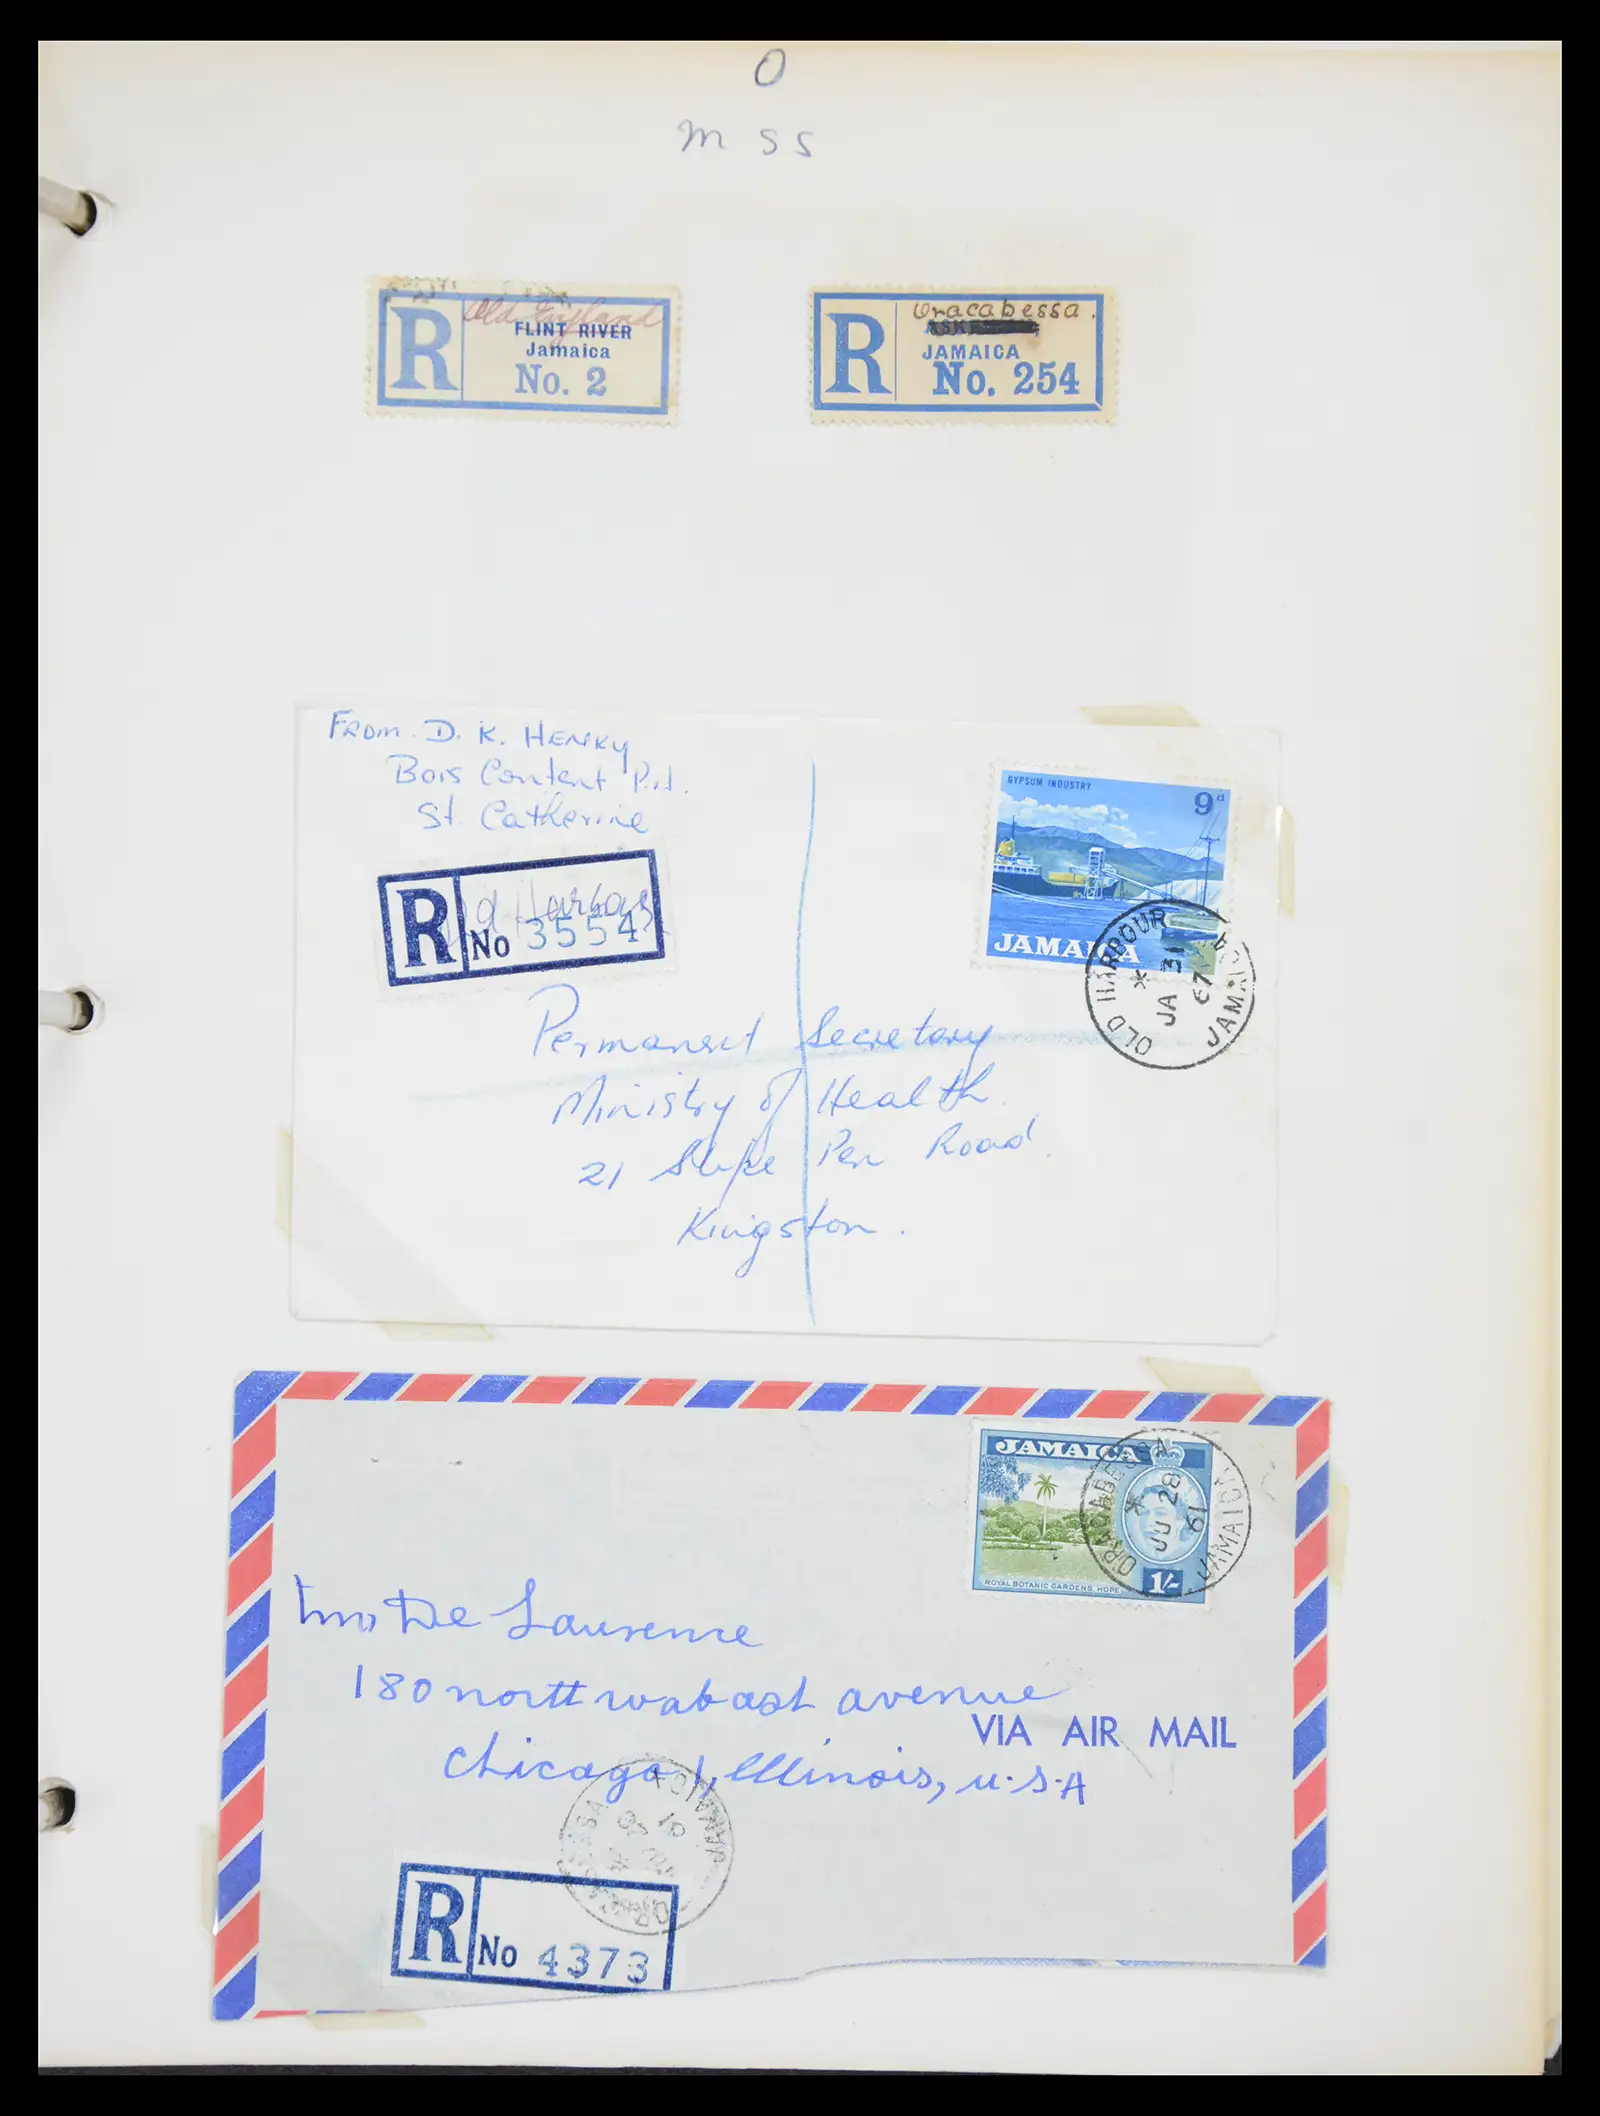 O
M S S
R
Old England
FLINT RIVER
Jamaica
No. 2
R
Oracabessa.
JAMAICA
No. 254
FROM. D. K. HENRY
Bois Content P.A.
St. Catherine
R
Old Harbour
No 3554
GYPSUM INDUSTRY
9d
JAMAICA
OLD HARBOUR
*
JA 31
67
JAMAICA
Permanent Secretary
Ministry of Health.
21 Slipe Pen Road.
Kingston.
JAMAICA
ROYAL BOTANIC GARDENS, HOPE
1/-
ORACABESSA
*
JU 28
61
JAMAICA
De Laurence
180 north wabash avenue
VIA AIR MAIL
Chicago 1, Illinois, U.S.A
JAMAICA
61
R
No 4373